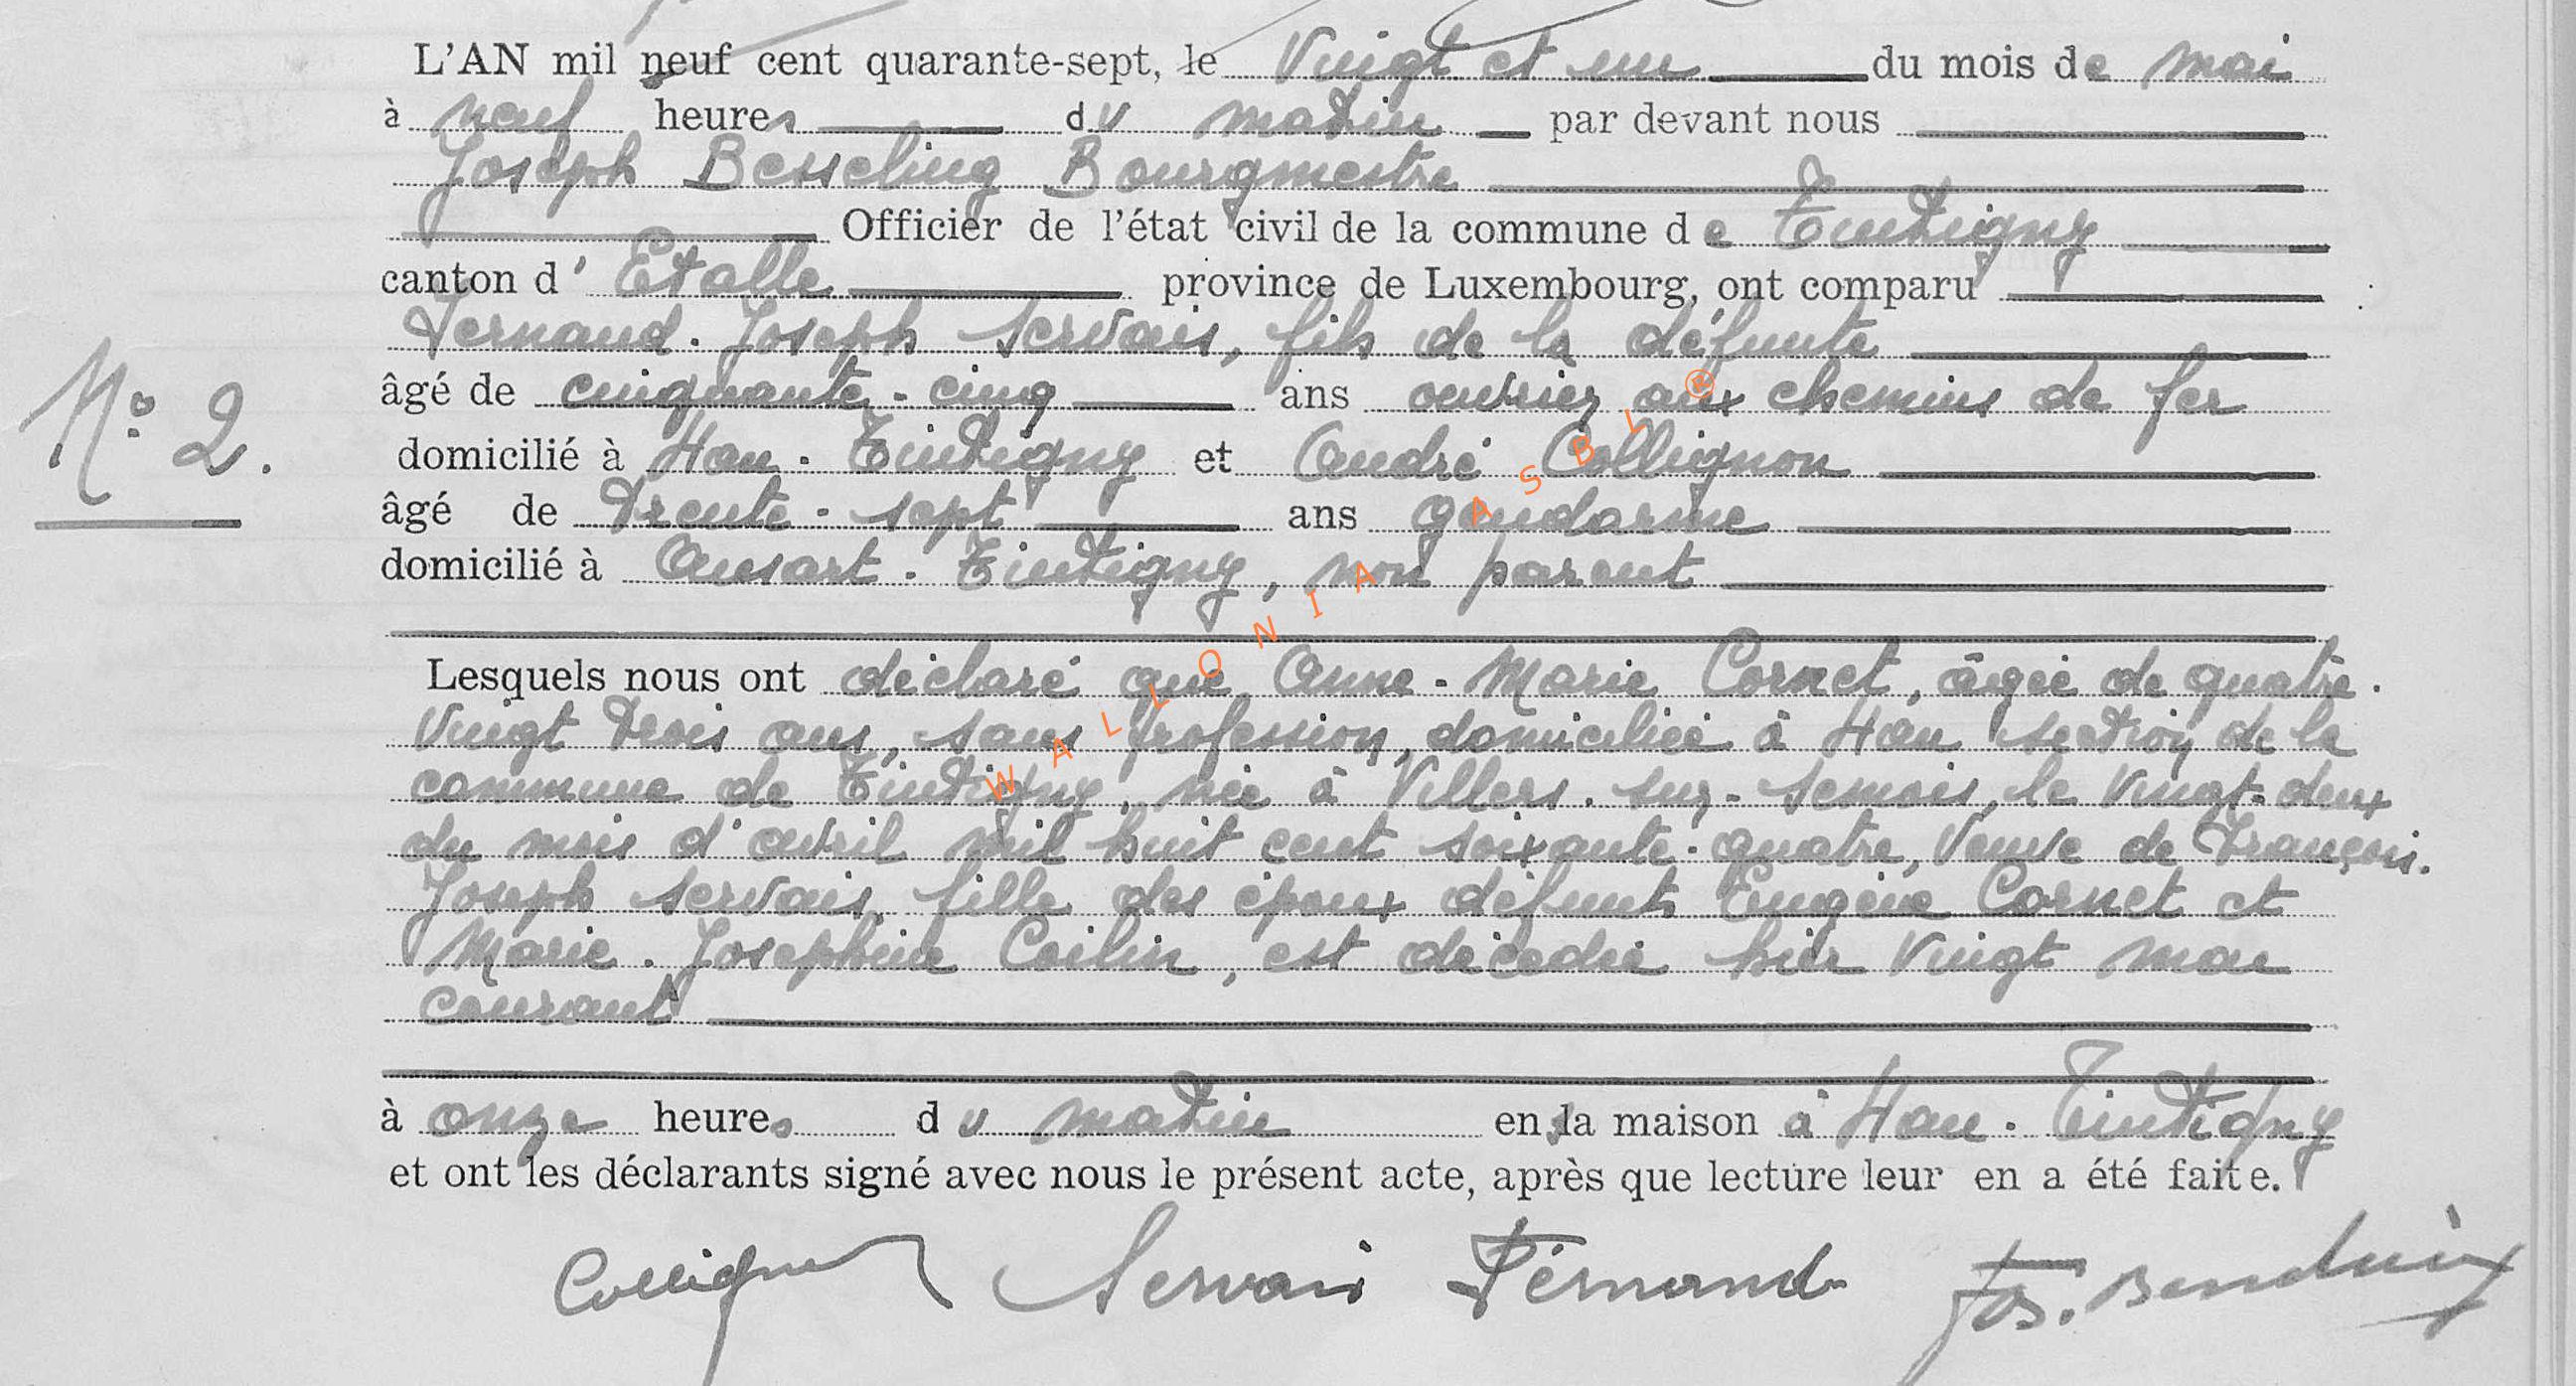 L'AN mil neuf cent quarante-sept, le Vingt et un du mois de mai
à neuf heures du matin par devant nous
Joseph Besseling Bourgmestre
Officier de l'état civil de la commune de Tintigny
canton d' Etalle province de Luxembourg, ont comparu
Fernand-Joseph Servais, fils de la défunte
âgé de cinquante-cinq ans ouvrier aux chemins de fer
N° 2.
domicilié à Han-Tintigny et André Collignon
âgé de trente-sept ans gendarme
domicilié à Ansart-Tintigny, non parent
Lesquels nous ont déclaré que Anne-Marie Cornet, âgée de quatre-
Vingt trois ans, sans profession, domiciliée à Han section de la
commune de Tintigny, née à Villers-sur-Semois, le Vingt-deux
du mois d'avril mil huit cent soixante-quatre, Veuve de François-
Joseph Servais, fille des époux défunts Eugène Cornet et
Marie-Josephine, est décédée hier Vingt mai
courant
à onze heures du matin en sa maison à Han-Tintigny
et ont les déclarants signé avec nous le présent acte, après que lecture leur en a été faite.
Collignon Servais Fernand Jos.
WALLONIA ASBL ®